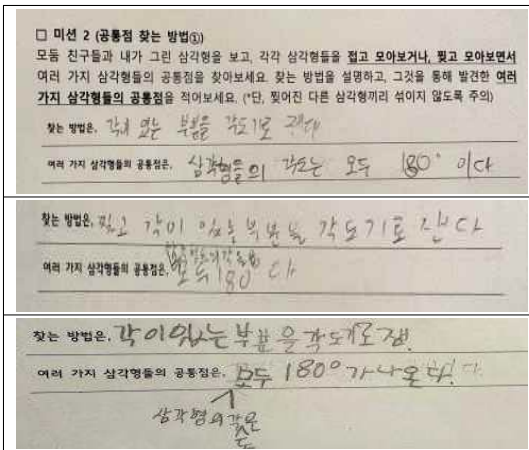 □ 미션 2 (공통점 찾는 방법①)
모둠 친구들과 내가 그린 삼각형을 보고, 각각 삼각형들을 접고 모아보거나, 찢고 모아보면서
여러 가지 삼각형들의 공통점을 찾아보세요. 찾는 방법을 설명하고, 그것을 통해 발견한 여러
가지 삼각형들의 공통점을 적어보세요. (*단, 찢어진 다른 삼각형끼리 섞이지 않도록 주의)
찾는 방법은, 각이 있는 부분을 각도기로 잰다
여러 가지 삼각형들의 공통점은, 삼각형들의 각도는 모두 180° 이다
찾는 방법은, 찢고 각이 있는 부분을 각도기로 잰다
여러 가지 삼각형들의 공통점은, 모두 180 다
찾는 방법은, 각이 있는 부분을 각도기로 잼.
여러 가지 삼각형들의 공통점은, 모두 180°가 나온다.
삼각형의 각은